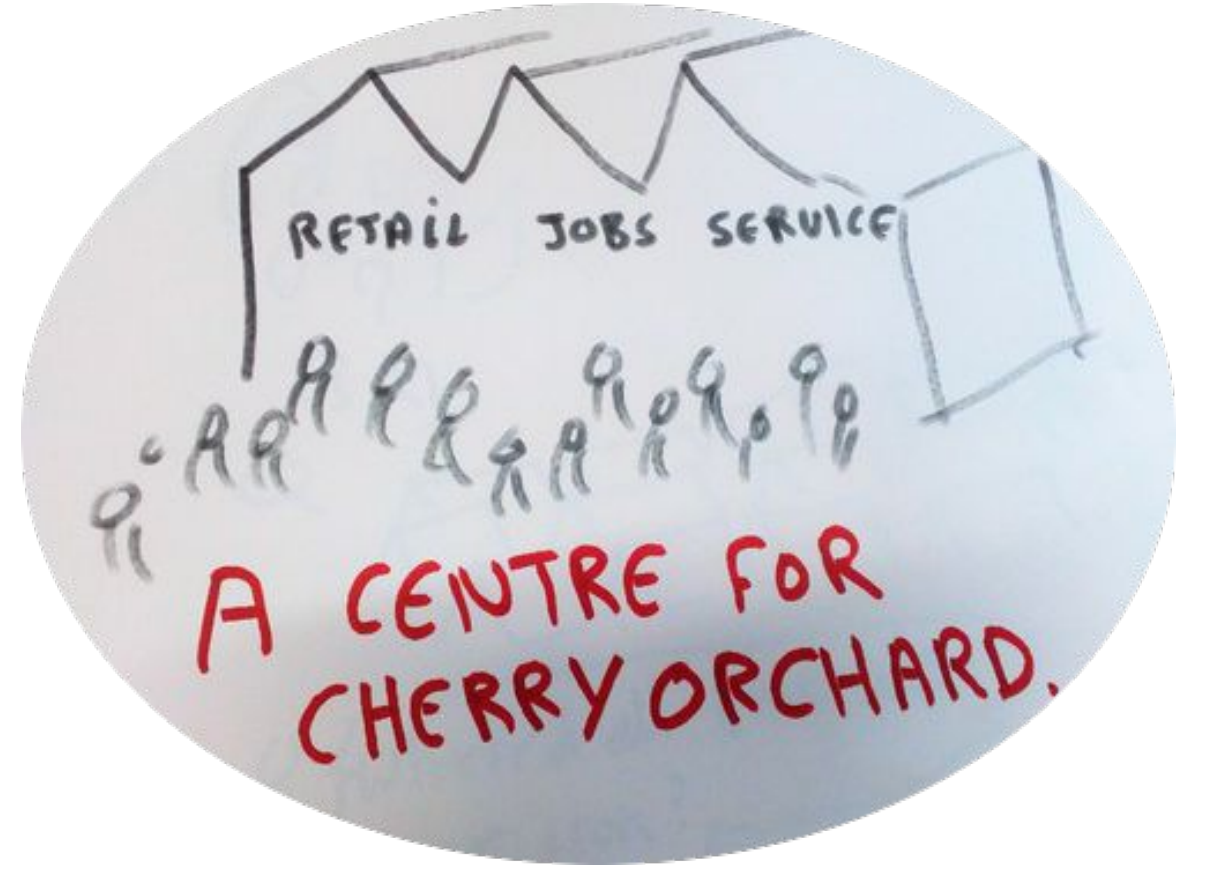 RETAiL JOBS SERVICE
A CENTRE FOR
CHERRY ORCHARD.